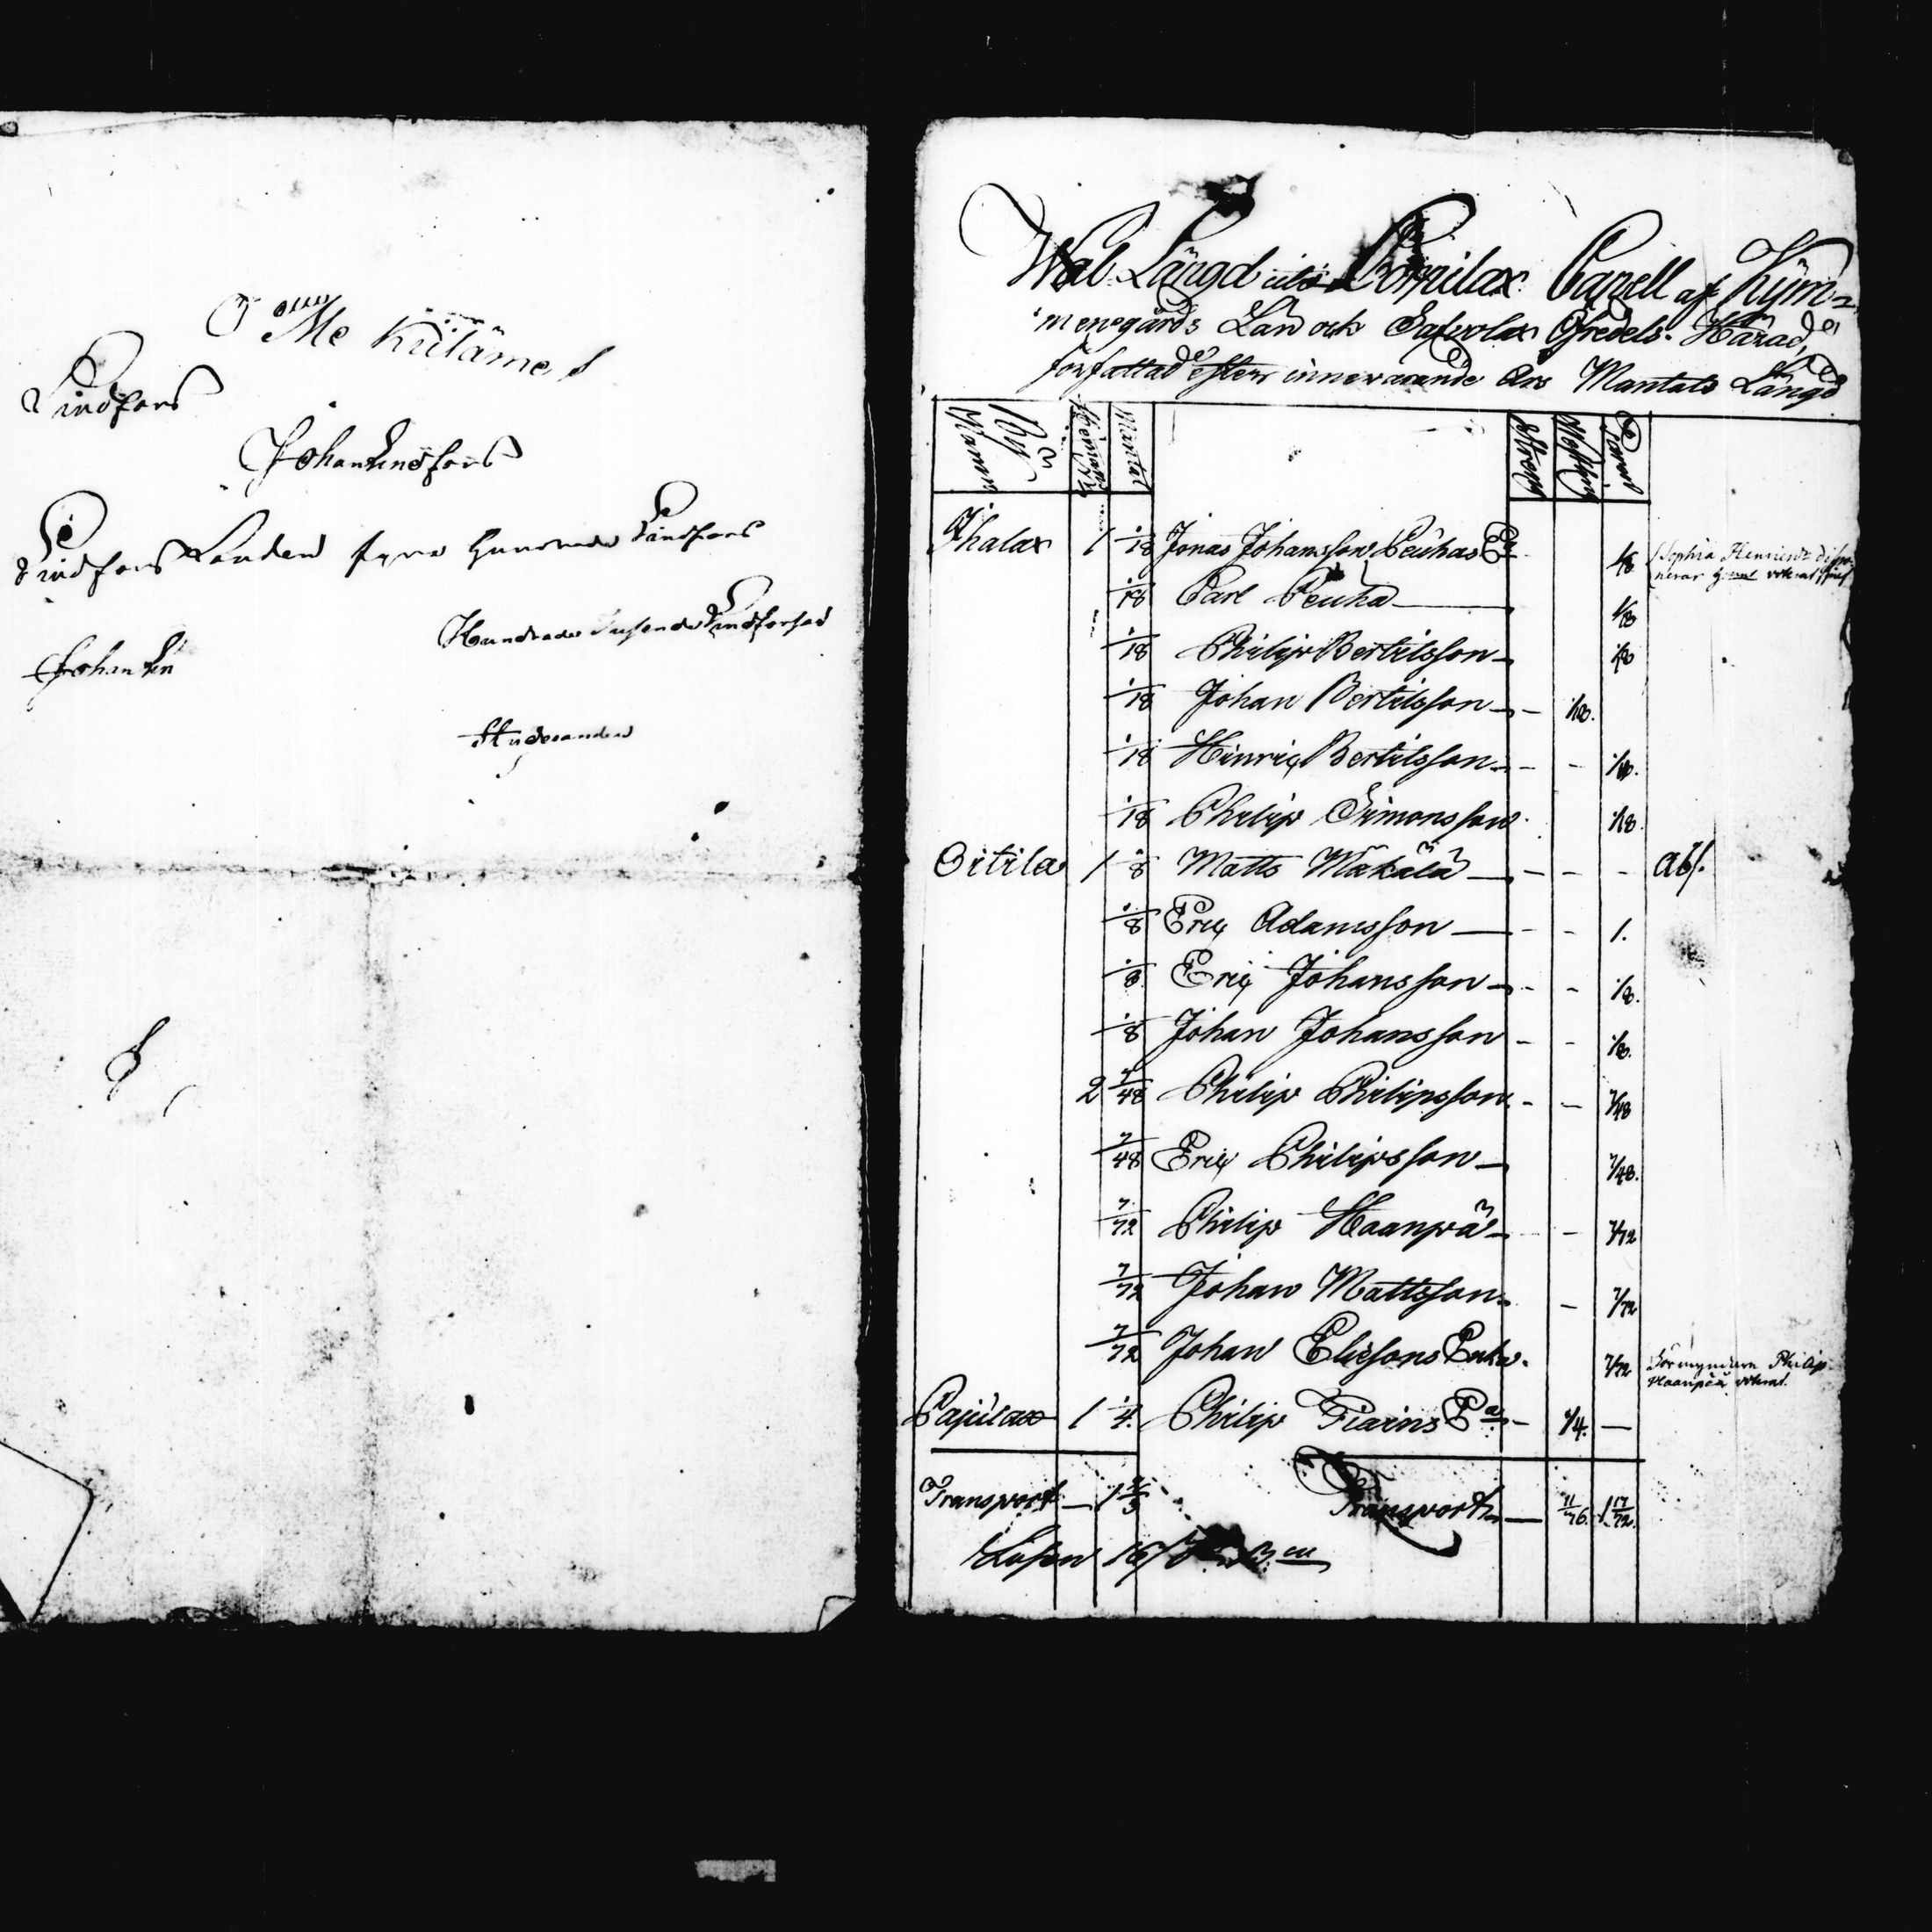 O Me Külämes
Lindfors
Johan Lindfors
Lindfors Lunden fyra hundrade Lindfors
Hundrade Tusende Lindforsar
Johan Lin
Wal Längd utö Cornilax Capell af Kÿm=
menegårds Län och Safwolax Öfredels Härad,
författad efter innewarande Års Mantals Längd
By Namn Hemans No Mantal
Ihalax 1 1/18 Jonas Johansson Peuhas Ea 1/18 Sophia Henricsd:r dispo-
nerar
1/18 Carl Peuha 1/18
1/18 Philip Bertilsson 1/18
1/18 Johan Bertilsson - 1/18.
1/18 Hinriq Bertilsson - - 1/18.
1/18 Philip Simonsson 1/18.
Oitila 1 1/8 Matts Mäkälä - - - Abs.
1/8 Eriq Adamsson - - 1.
1/8 Eriq Johansson - - 1/8.
1/8 Johan Johansson - - 1/8.
2 7/48 Philip Philipsson - - 7/48
7/48 Eriq Philipsson 7/48.
7/72 Philip Haanpä - 7/72
7/72 Johan Mattsson - 7/72
7/72 Johan Eliesons Enka. 7/72 Förmyndaren Philip
Haanpää voterat.
Papulax 1 1/4. Philip Tiains Ea - 1/4. —
Transport — 1 Transport — 1 17/72.